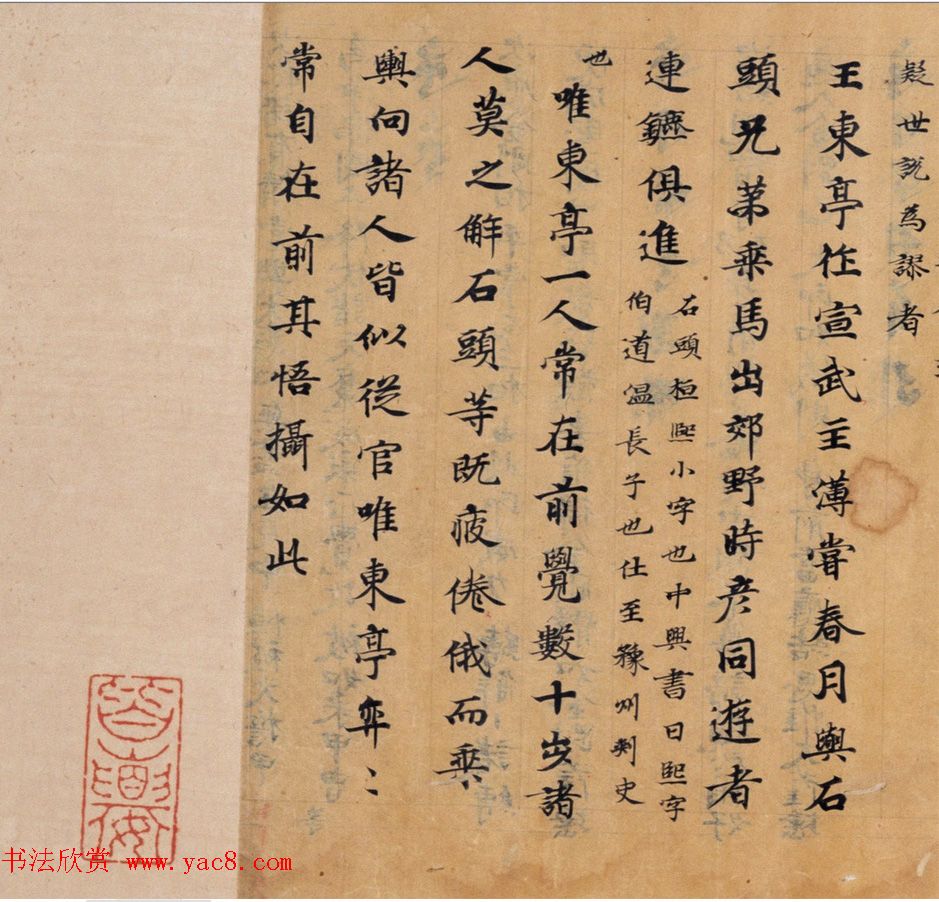 疑世説為謬者
王東亭作宣武主薄嘗春月與石
頭兄苐乘馬出郊野時彦同遊者
連鑣俱進
石頭桓熙小字也中興書曰熙字
伯道温長子也仕至豫州刺史
也
唯東亭一人常在前覺數十步諸
人莫之解石頭等既疲倦俄而乘
輿向諸人皆似從官唯東亭弈〻
常自在前其悟攝如此
书法欣赏 www.yac8.com